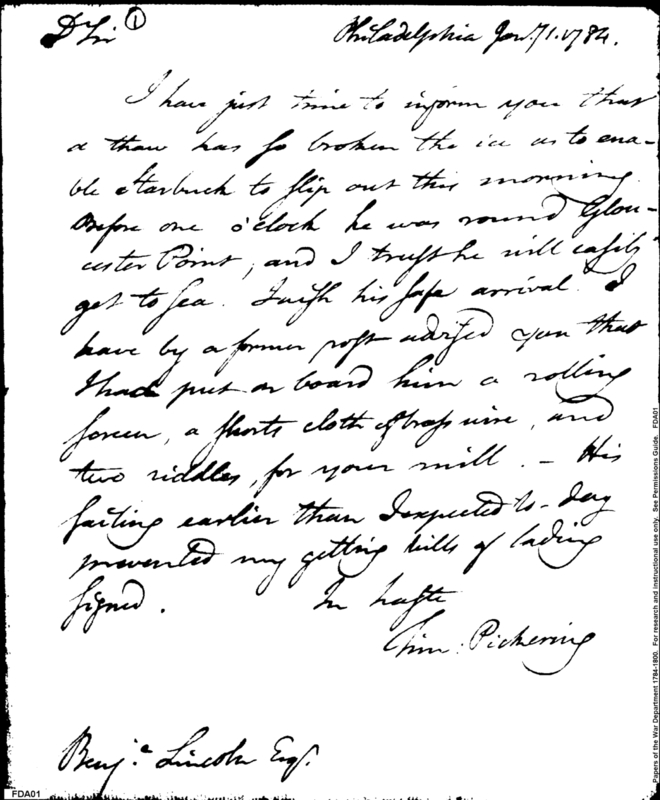 Dr Sir ① Philadelphia Jany. 1. 1784.
I have just time to inform you that
a thaw has so broken the ice as to ena-
ble Starbuck to slip out this morning.
Before one o'clock he was round Glou-
cester Point, and I trust he will easily
get to sea. I wish his safe arrival. I
have by a former post advised you that
I had put on board him a rolling
screen, a shorts cloth of brass wire, and
two riddles, for your mill. – His
sailing earlier than I expected to-day
prevented my getting bills of lading
signed. In haste
Tim: Pickering
Benja. Lincoln Esqr.
FDA01
Papers of the War Department 1784-1800. For research and instructional use only. See Permissions Guide. FDA01